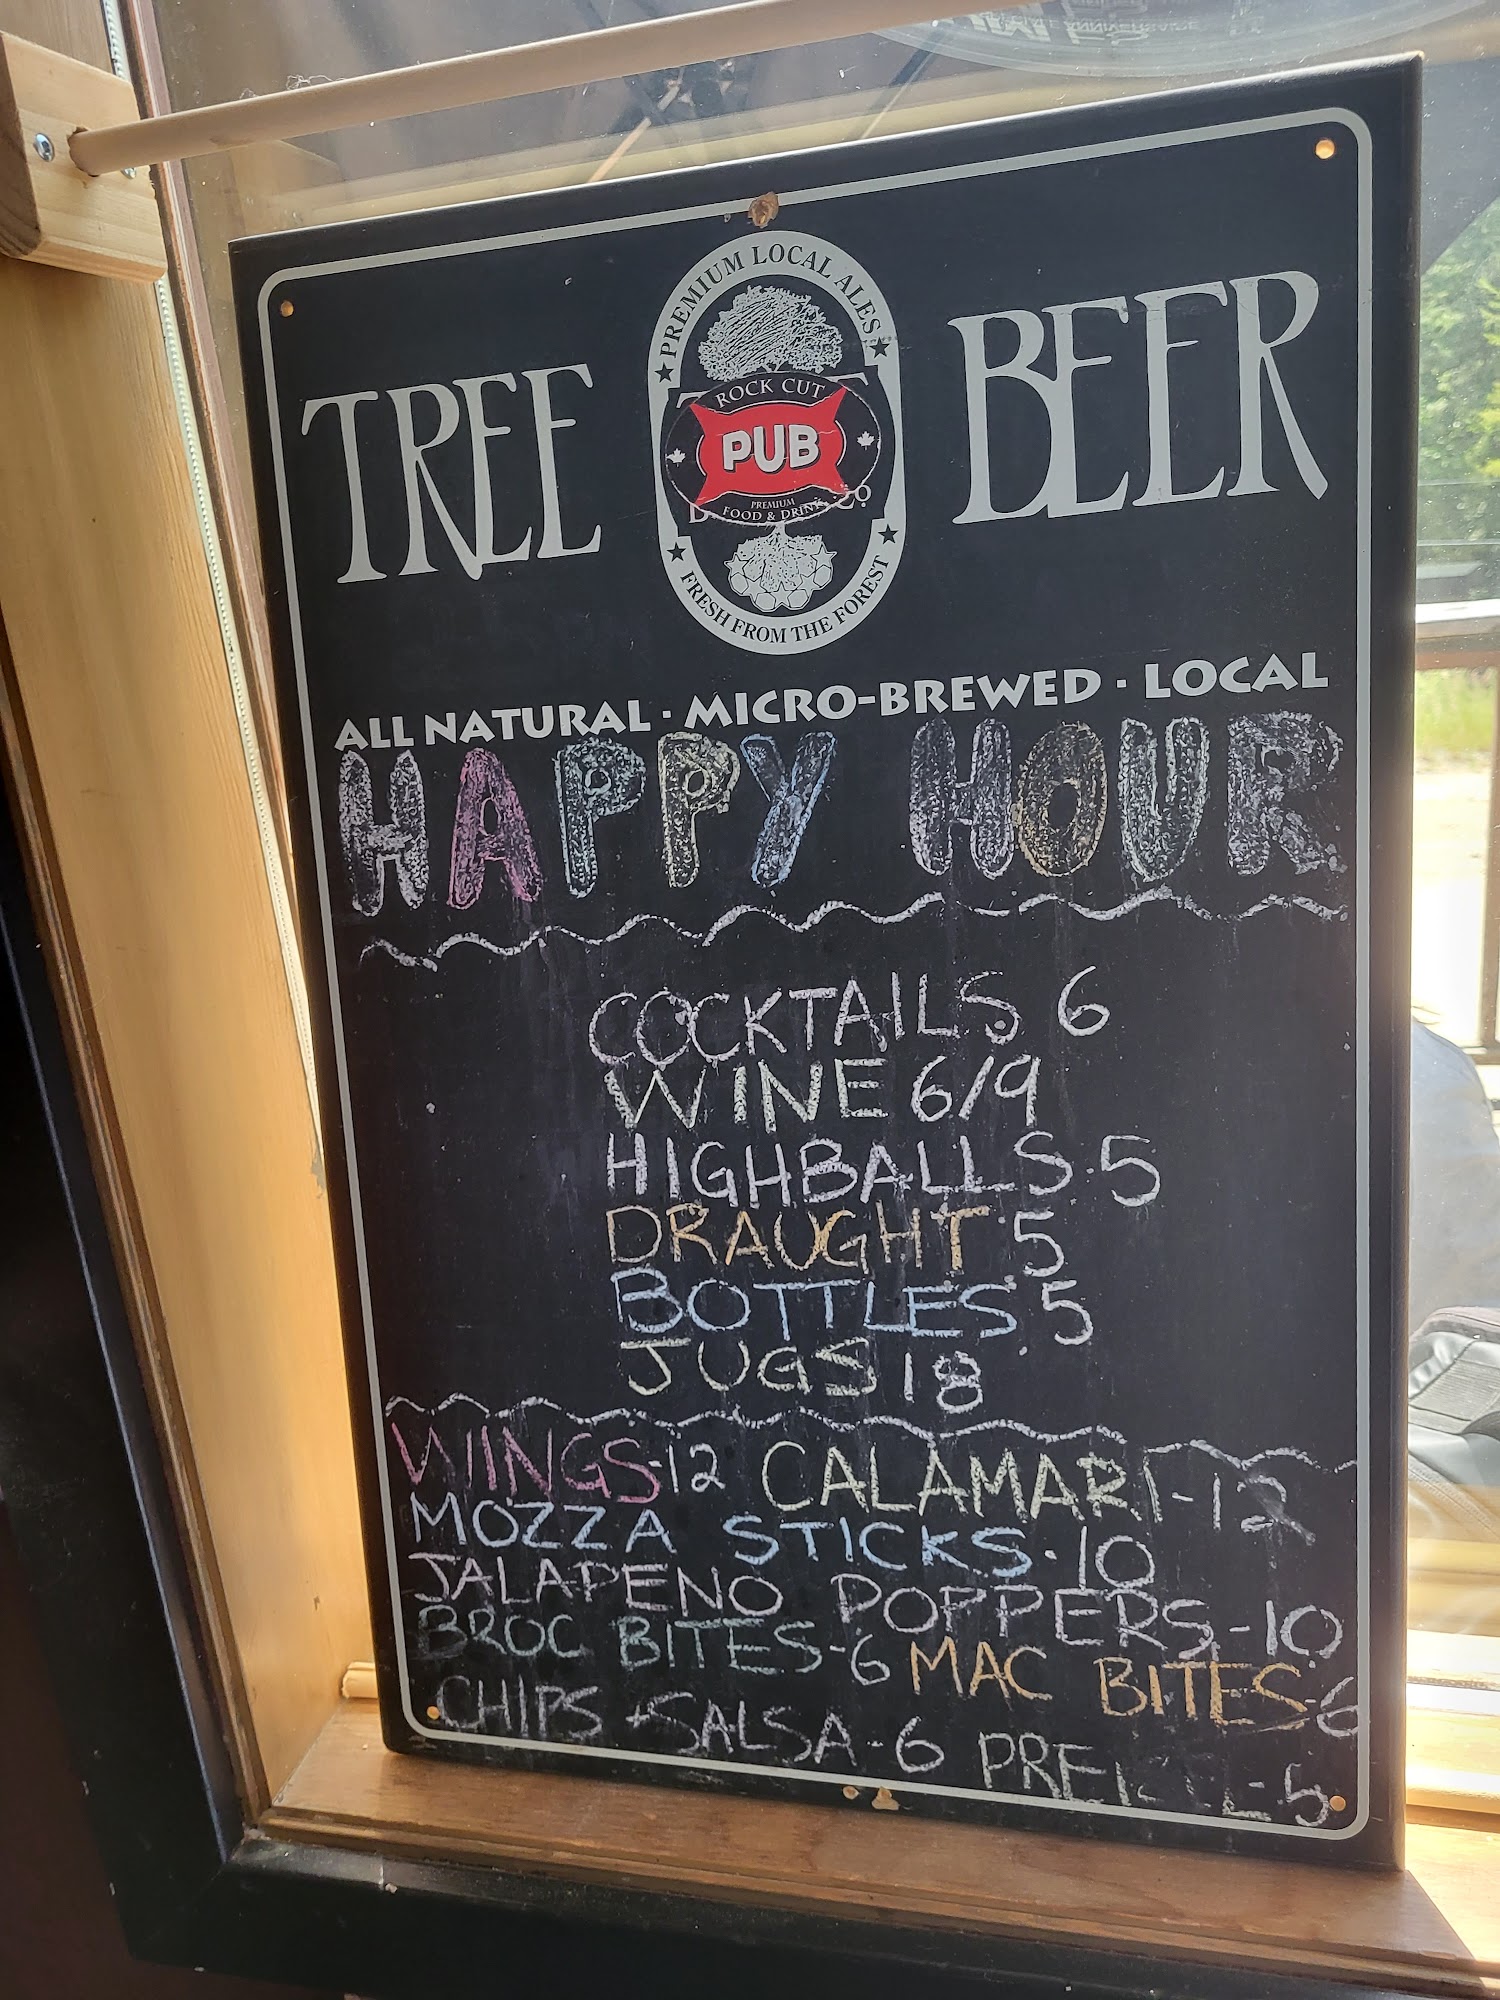 PREMIUM LOCAL ALES
TREE BEER
ROCK CUT
PUB
PREMIUM
FOOD & DRINK
FRESH FROM THE FOREST
ALL NATURAL · MICRO-BREWED · LOCAL
HAPPY HOUR
COCKTAILS 6
WINE 6/9
HIGHBALLS 5
DRAUGHT 5
BOTTLES 5
JUGS 18
WINGS-12 CALAMARI-12
MOZZA STICKS-10
JALAPENO POPPERS-10
BROC BITES-6 MAC BITES-6
CHIPS + SALSA-6